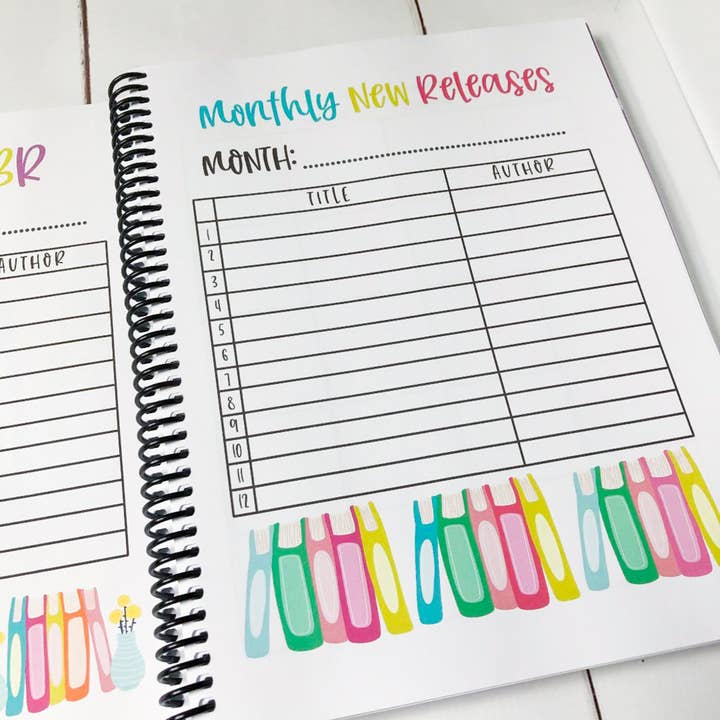 BR
AUTHOR
Monthly New Releases
MONTH:
TITLE AUTHOR
1
2
3
4
5
6
7
8
9
10
11
12